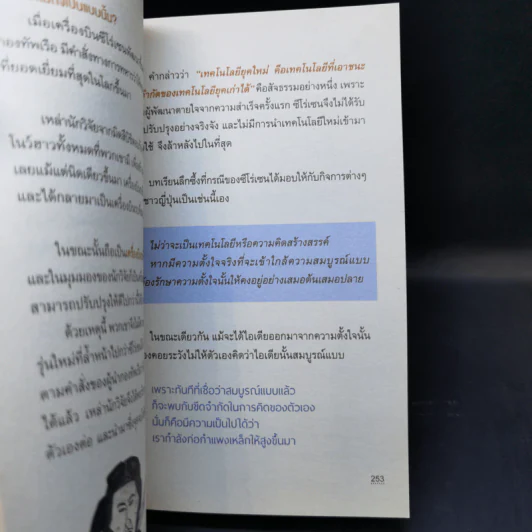 เมื่อเครื่องบินซีโร่เซน
องทัพเรือ มีคำสั่งทางการทหาร
ที่ยอดเยี่ยมที่สุดในโลกขึ้นมา
เหล่านักวิจัยจาก
โนว์ฮาวทั้งหมดที่พวกเขามี
เลยแม้แต่นิดเดียวขึ้นมา
และได้กลายมาเป็นเครื่องบิน
ในขณะนั้นถือเป็น
และในมุมมองของนักวิจัย
สามารถปรับปรุงให้ดีไปกว่า
ด้วยเหตุนี้ พวกเขาจึง
รุ่นใหม่ที่ล้ำหน้าไปกว่า
ตามคำสั่งของผู้นำกองทัพ
ได้แล้ว เหล่านักวิจัย
ตัวเองต่อ และนำมา
คำกล่าวว่า “เทคโนโลยียุคใหม่ คือเทคโนโลยีที่เอาชนะ
กัดของเทคโนโลยียุคเก่าได้” คือสัจธรรมอย่างหนึ่ง เพราะ
ผู้พัฒนาตายใจจากความสำเร็จครั้งแรก ซีโร่เซนจึงไม่ได้รับ
ปรับปรุงอย่างจริงจัง และไม่มีการนำเทคโนโลยีใหม่เข้ามา
ใช้ จึงล้าหลังไปในที่สุด
บทเรียนลึกซึ้งที่กรณีของซีโร่เซนได้มอบให้กับกิจการต่างๆ
ชาวญี่ปุ่นเป็นเช่นนี้เอง
ไม่ว่าจะเป็นเทคโนโลยีหรือความคิดสร้างสรรค์
หากมีความตั้งใจจริงที่จะเข้าใกล้ความสมบูรณ์แบบ
ต้องรักษาความตั้งใจนั้นให้คงอยู่อย่างเสมอต้นเสมอปลาย
ในขณะเดียวกัน แม้จะได้ไอเดียออกมาจากความตั้งใจนั้น
องคอยระวังไม่ให้ตัวเองคิดว่าไอเดียนั้นสมบูรณ์แบบ
เพราะทันทีที่เชื่อว่าสมบูรณ์แบบแล้ว
ก็จะพบกับขีดจำกัดในการคิดของตัวเอง
นั่นก็คือมีความเป็นไปได้ว่า
เรากำลังก่อกำแพงเหล็กให้สูงขึ้นมา
253